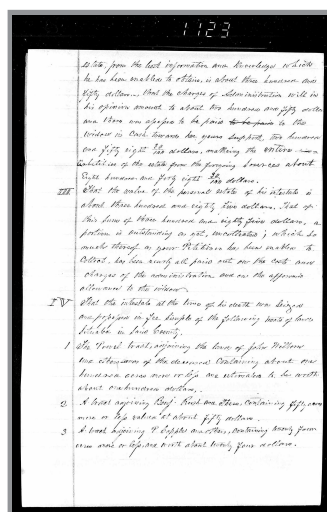 1123
estate, from the best information and knowledge which
he has been enabled to obtain, is about three hundred and
fifty dollars. That the charges of Administration will in
his opinion amount to about two hundred and fifty dollars
and there was to be paid to be paid to the
widow in Cash towards her years support, two hundred
and fifty eight 20/100 dollars, making the entire
liabilities of the estate from the foregoing sources about
Eight hundred and forty eight 20/100 dollars.
III That the value of the personal estate of his intestate is
about three hundred and eighty five dollars. That of
this sum of three hundred and eighty five dollars, a
portion is outstanding as yet, uncollected; which so
much thereof as your Petitioner has been enabled to
Collect, has been nearly all paid out on the costs and
charges of the administration, and on the
allowance to the widow.
IV That the intestate at the time of his death was seized
and possessed in fee simple of the following tracts of land
situate in said County.
1 The Tract adjoining the lands of John
and others of the deceased Containing about one
hundred acres more or less and estimated to be worth
about one hundred dollars.
2 A tract adjoining Benj. Rush and others, containing fifty acres
more or less valued at about fifty dollars.
3 A tract adjoining and others, containing twenty four
acres more or less, and worth about twenty four dollars.